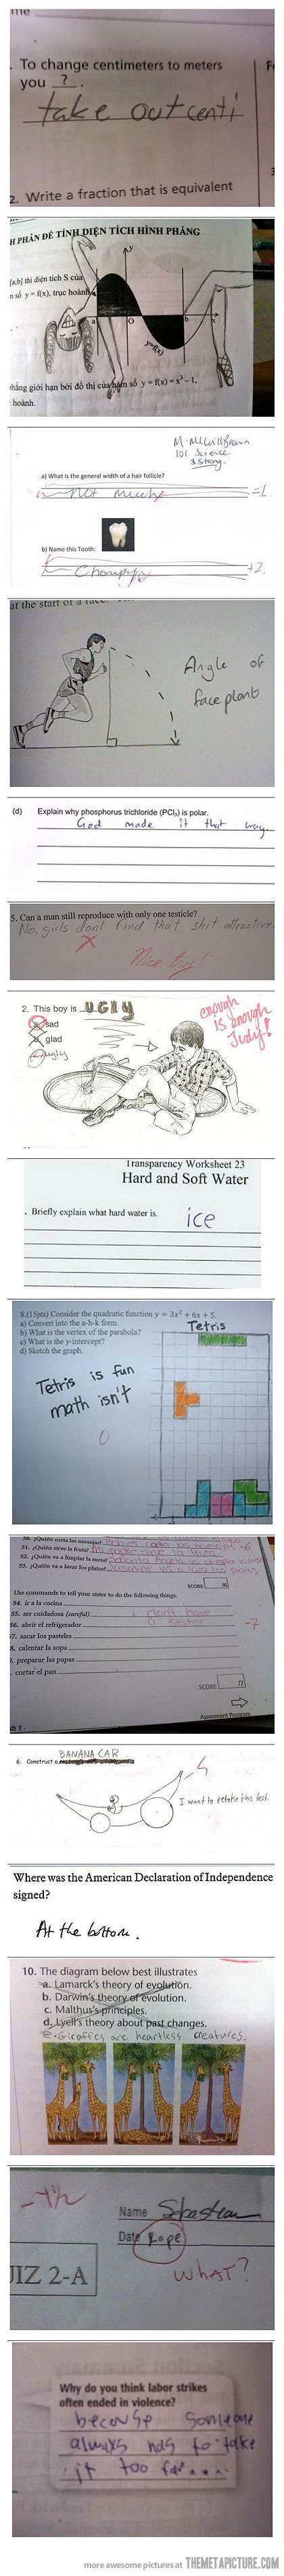 me
. To change centimeters to meters
you ? .
take out centi
2. Write a fraction that is equivalent
H PHÂN ĐỂ TÍNH DIỆN TÍCH HÌNH PHẲNG
[a;b] thì diện tích S của
n số y = f(x), trục hoành
y
a
O
b
x
y=f(x)
hẳng giới hạn bởi đồ thị của hàm số y = f(x) = x³ – 1,
hoành.
101 Science
a) What is the general width of a hair follicle?
not much
-1
b) Name this Tooth:
Chompy
+2
at the start of a race.
Angle of
face plant
(d) Explain why phosphorus trichloride (PCl₃) is polar.
God made it that way.
5. Can a man still reproduce with only one testicle?
No, girls dont find that shit attractive
Nice try!
2. This boy is UGLY
a. sad
glad
ugly
enough
is enough
Judy!
Transparency Worksheet 23
Hard and Soft Water
. Briefly explain what hard water is.
ice
8.(15pts) Consider the quadratic function y = 3x² + 6x + 5.
a) Convert into the a-h-k form.
b) What is the vertex of the parabola?
c) What is the y-intercept?
d) Sketch the graph.
Tetris
Tetris is fun
math isn't
0
50. ¿Quién corta las naranjas?
51. ¿Quién sirve la fruta?
52. ¿Quién va a limpiar la mesa?
53. ¿Quién va a lavar los platos?
SCORE
Use commands to tell your sister to do the following things.
54. ir a la cocina
55. ser cuidadosa (careful) i dont have
56. abrir el refrigerador a sister
-7
7. sacar los pasteles
8. calentar la sopa
. preparar las papas
. cortar el pan
SCORE
Assessment Program
6. Construct a BANANA CAR
-5
I want to retake this test.
Where was the American Declaration of Independence
signed?
At the bottom.
10. The diagram below best illustrates
a. Lamarck's theory of evolution.
b. Darwin's theory of evolution.
c. Malthus's principles.
d. Lyell's theory about past changes.
e. Giraffes are heartless creatures.
-1/2
Name Sebastian
Date Rape
UIZ 2-A
WHAT?
Why do you think labor strikes
often ended in violence?
because someone
always has to take
it too far....
more awesome pictures at THEMETAPICTURE.COM